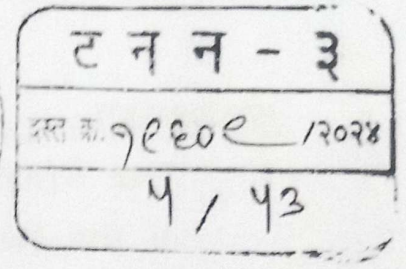 ट न न - ३
दस्त क्र. १९६०९ /२०२४
५ / ५३